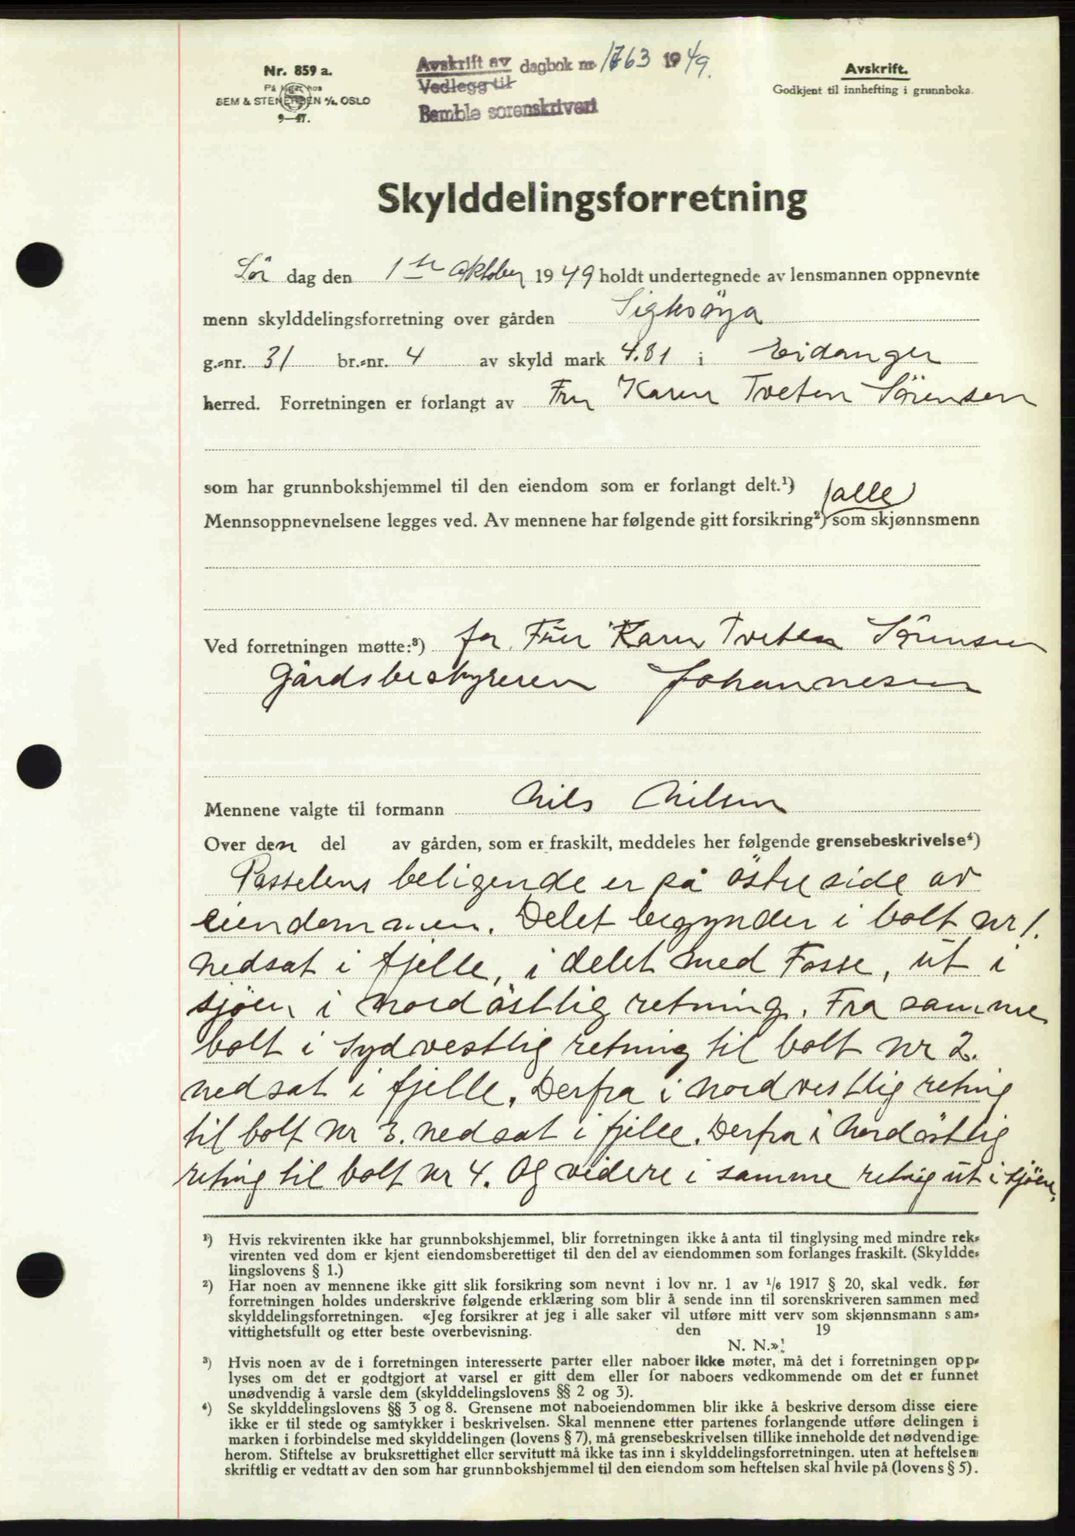 Nr. 859 a.
På lager hos
SEM & STENERSEN A/S, OSLO
9-47.
Avskrift av dagbok nr 1763 1949.
Vedlegg til
Bamble sorenskriveri
Avskrift.
Godkjent til innhefting i grunnboka.
Skylddelingsforretning
Lör dag den 1ste Oktober 1949 holdt undertegnede av lensmannen oppnevnte
menn skylddelingsforretning over gården Siglesöya
g.-nr. 31 br.-nr. 4 av skyld mark 4.81 i Eidanger
herred. Forretningen er forlangt av Fru Karen Tveten Sörensen
som har grunnbokshjemmel til den eiendom som er forlangt delt.¹)
(alle)
Mennsoppnevnelsene legges ved. Av mennene har følgende gitt forsikring²) som skjønnsmenn
Ved forretningen møtte:³) for Frue Karen Tveten Sörensen
Gårdsbestyreren Johannesen
Mennene valgte til formann Nils Nilsen
Over den del av gården, som er fraskilt, meddeles her følgende grensebeskrivelse⁴)
Passelens beligende er på östre side av
eiendommen. Delet begynder i bolt nr 1.
nedsat i fjelle, i delet med Fosse, ut i
sjöen i nordöstlig retning. Fra samme
bolt i sydvestlig retning til bolt nr 2.
nedsat i fjelle. Derfra i nordvestlig retnig
til bolt nr 3. nedsat i fjelle. Derfra i Nordöstlig
retnig til bolt nr 4. Og videre i samme retnig ut i sjöen.
¹) Hvis rekvirenten ikke har grunnbokshjemmel, blir forretningen ikke å anta til tinglysing med mindre rek-
virenten ved dom er kjent eiendomsberettiget til den del av eiendommen som forlanges fraskilt. (Skyldde-
lingslovens § 1.)
²) Har noen av mennene ikke gitt slik forsikring som nevnt i lov nr. 1 av 1/6 1917 § 20, skal vedk. før
forretningen holdes underskrive følgende erklæring som blir å sende inn til sorenskriveren sammen med
skylddelingsforretningen. «Jeg forsikrer at jeg i alle saker vil utføre mitt verv som skjønnsmann sam-
vittighetsfullt og etter beste overbevisning. den 19
N. N.»!
³) Hvis noen av de i forretningen interesserte parter eller naboer ikke møter, må det i forretningen opp-
lyses om det er godtgjort at varsel er gitt dem eller for naboers vedkommende om det er funnet
unødvendig å varsle dem (skylddelingslovens §§ 2 og 3).
⁴) Se skylddelingslovens §§ 3 og 8. Grensene mot naboeiendommen blir ikke å beskrive dersom disse eiere
ikke er til stede og samtykker i beskrivelsen. Skal mennene etter partenes forlangende utføre delingen i
marken i forbindelse med skylddelingen (lovens § 7), må grensebeskrivelsen tillike inneholde det nødvendige
herom. Stiftelse av bruksrettighet eller servitutt må ikke tas inn i skylddelingsforretningen. uten at heftelsen
skriftlig er vedtatt av den som har grunnbokshjemmel til den eiendom som heftelsen skal hvile på (lovens § 5).